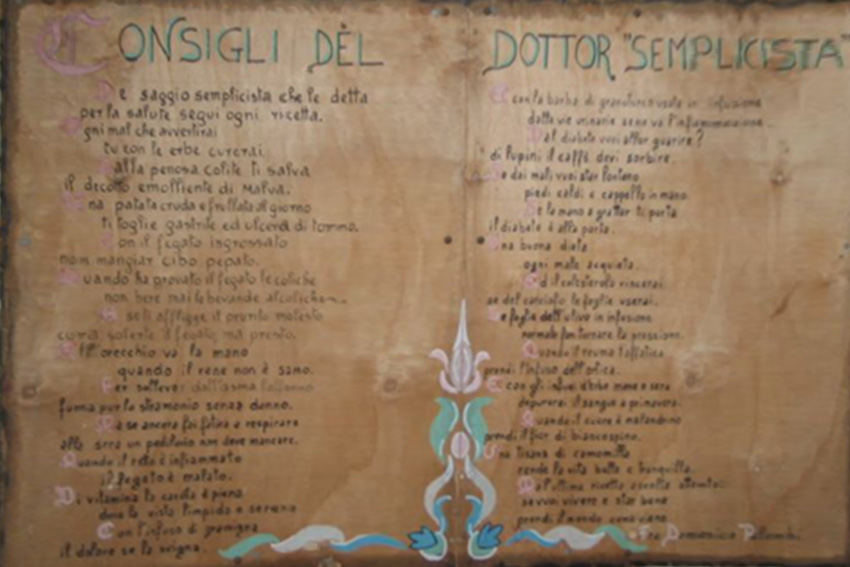 CONSIGLI DÈL DOTTOR "SEMPLICISTA"
De saggio semplicista che le detta
per la salute segui ogni ricetta.
Ogni mal che avvertirai
tu con le erbe curerai.
Dalla penosa colite ti salva
il decotto emolliente di Malva.
Una patata cruda e frullata al giorno
ti toglie gastrite ed ulcera di torno.
Con il fegato ingrossato
non mangiar cibo pepato.
Quando ha provato il fegato le coliche
non bere mai le bevande alcoliche
Se ti affligge il prurito molesto
cura solerte il fegato, ma presto.
All'orecchio va la mano
quando il rene non è sano.
Per sollevar dall'asma l'affanno
fuma pur lo stramonio senza danno.
Ma se ancora fai fatica a respirare
alla sera un pediluvio non deve mancare.
Quando il retto è infiammato
il fegato è malato.
Di vitamina la carota è piena
dona la vista limpida e serena
Con l'infuso di gramigna
il dolore se la svigna.
con la barba di granoturco usata in infusione
dalle vie urinarie se ne va l'infiammazione.
Dal diabete vuoi guarire?
di lupini il caffè devi sorbire.
Se dai mali vuoi star lontano
piedi caldi e cappello in mano.
Se la mano a grattar ti porta
il diabete è alla porta.
Una buona dieta
ogni male acquieta.
Ed il colesterolo vincerai
se del carciofo le foglie userai.
Le foglie dell'ulivo in infusione
normale fan tornare la pressione.
Quando il reuma t'affatica
prendi l'infuso dell'ortica.
E con gli infusi d'erbe mane e sera
depurerai il sangue a primavera.
Quando il cuore è malandrino
prendi il fior di biancospino.
Una tisana di camomilla
rende la vita bella e tranquilla.
Ma l'ultima ricetta ascolta attento:
se vuoi vivere e star bene
prendi il mondo come viene.
Fra Domenico Palombi